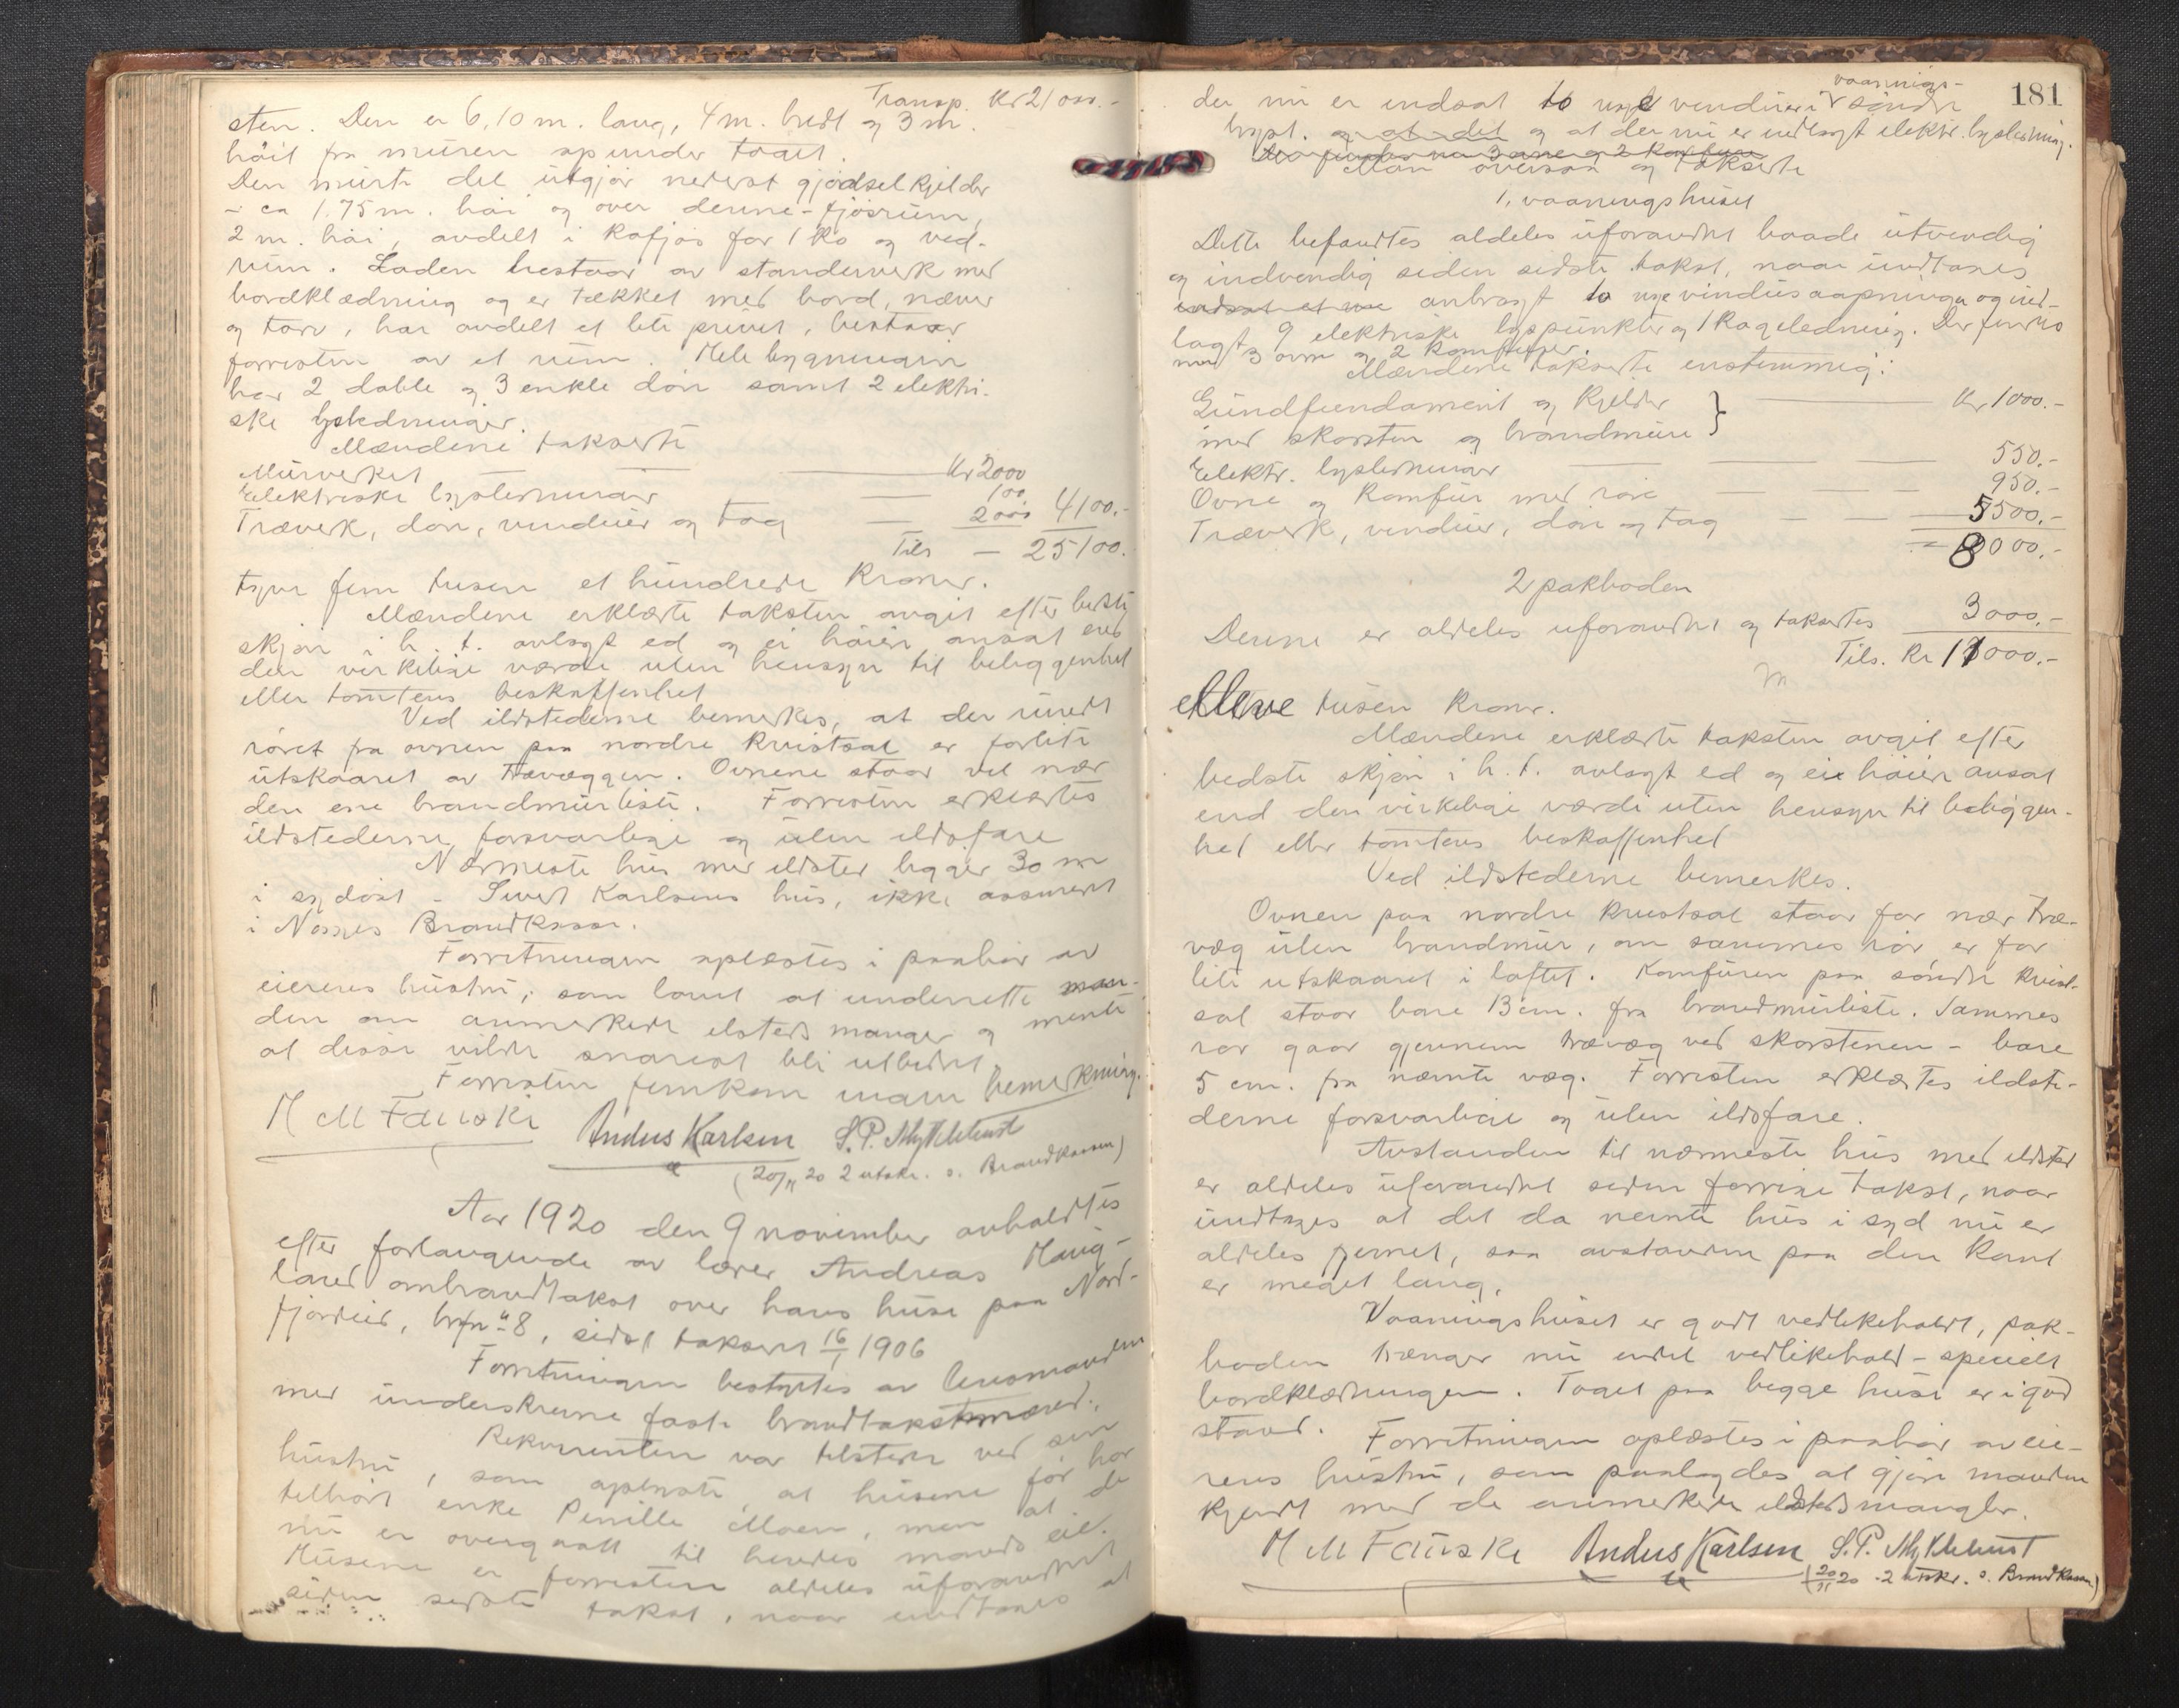 Transp. Kr 21000.-
sten. Den er 6,10 m. lang, 4 m. bredt og 3 m.
höit fra muren op under taget.
Den murte del utgjör nederst gjödselkjelder
- ca 1.75 m. höi og over denne - fjösrum,
2 m. höi, avdelt i kofjös for 1 ko og ved-
rum. Laden bestaar av standerverk med
bordklædning og er tækket med bord, næver
og torv, har avdelt et lite privet, bestaar
forresten av et rum. Hele bygningen
har 2 doble og 3 enkle döre samt 2 elektri-
ske lysledninger.
Mændene takserte
Murverket Kr 2000
Elektriske lysledninger 100.
Træverk, döre, vinduer og tag 2000 4100.-
Tils - 25100.
tyve fem tusen et hundrede kroner.
Mændene erklærte taksten avgit efter bedste
skjön i h. t. avlagt ed og ei höiere ansat end
den virkelige værdi uten hensyn til beliggenhet
eller tomtens beskaffenhet
Ved ildstederne bemerkes, at der rundt
röret fra ovnen paa nordre kvistsal er forlite
utskaaret av trævæggen. Ovnene staar vel nær
den ene brandmurliste. Forresten erklærtes
ildstederne forsvarlige og uten ildsfare
Nærmeste hus med ildsted ligger 30 m
i sydöst - Sivert Karlsens hus, ikke assurert
i Norges Brandkasse.
Forretningen oplæstes i paahör av
eierens hustru, som lovet at underrette man-
den om anmerkede ildsteds mangler og mente
at disse vilde snarest bli utbedret
Forresten fremkom ingen bemerkning.
H M Fauske Andus Karlsen S. P. Myklebust
(20/11 20 2 utskr. s. Brandkassen)
Aar 1920 den 9 november avholdtes
efter forlangende av lærer Andreas Haug-
land ombrandtakst over hans huse paa Nord-
fjordeid, brfn 8, sidst taksert 16/1 1906
Forretningen bestyrtes av lensmanden
med underskrevne faste brandtakstmænd.
Rekvirenten var tilstede ved sin
hustru, som oplyste, at husene för har
tilhört enke Pernille Moen, men at de
nu er overgaatt til hendes mands eie.
Husene er forresten aldeles uforandret
siden sidste takst, naar undtages at
181
vaanings-
der nu er indsat to nye vinduer i söndre
bygn. og at det og at der nu er indlagt elektr. lysledning.
Der findes nu 3 ovne og 2 komfurer
Man overså og takserte
1, vaaningshuset
Dette befandtes aldeles uforandret baade utvendig
og indvendig siden sidste takst, naar undtages
indsat et nye anbragt to nye vindusaapninger og ind-
lagt 9 elektriske lyspunkter og 1 kogeledning. Der findes
nu 3 ovne og 2 komfurer.
Mændene takserte enstemmig:
Grundfundament og kjelder } Kr 1000.-
med skorsten og brandmure
Elektr. lysledninger 550.-
Ovne og komfur med röre 950.-
Træverk, vinduer, döre og tag 5500.-
- 8000.-
2 pakboden
Denne er aldeles uforandret og takstes 3000.-
Tils. Kr 11000.-
elleve tusen kroner.
Mændene erklærte taksten avgit efter
bedste skjön i h. t. avlagt ed og ei höiere ansat
end den virkelige værdi uten hensyn til beliggen-
het eller tomtens beskaffenhet
Ved ildstederne bemerkes.
Ovnen paa nordre kvistsal staar for nær træ-
væg uten brandmur, om sammes rör er for
lite utskaaret i loftet. Komfuren paa söndre kvist-
sal staar bare 13 cm. fra brandmurliste. Sammes
rör gaar gjennem trævæg ved skorstenen - bare
5 cm. fra nævnte væg. Forresten erklærtes ildste-
derne forsvarlige og uten ildsfare.
Avstanden til nærmeste hus med ildsted
er aldeles uforandret siden forrige takst, naar
undtages at det da nevnte hus i syd nu er
aldeles fjernet, saa avstanden paa den kant
er meget lang.
Vaaningshuset er godt vedlikeholdt, pak-
boden trænger nu endel vedlikehold - specielt
bordklædningen. Taget paa begge huse er i god
stand. Forretningen oplæstes i paahör av eie-
rens hustru, som paalagdes at gjöre manden
kjendt med de anmerkede ildstedsmangler.
H M Fauske Andus Karlsen S. P. Myklebust
(20/11 20 - 2 utskr. s. Brandkassen)